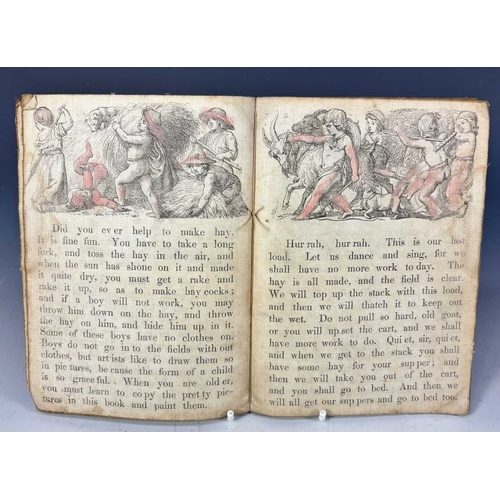 Did you ev er help to make hay.
It is fine fun. You have to take a long
fork, and toss the hay in the air, and
when the sun has shone on it and made
it quite dry, you must get a rake and
rake it up, so as to make hay cocks;
and if a boy will not work, you may
throw him down on the hay, and throw
the hay on him, and hide him up in it.
Some of these boys have no clothes on.
Boys do not go in to the fields with out
clothes, but art ists like to draw them so
in pic tures, be cause the form of a child
is so grace ful. When you are old er,
you must learn to co py the pret ty pic-
tures in this book and paint them.
Hur rah, hur rah. This is our last
load. Let us dance and sing, for we
shall have no more work to day. The
hay is all made, and the field is clear.
We will top up the stack with this load,
and then we will thatch it to keep out
the wet. Do not pull so hard, old goat,
or you will up set the cart, and we shall
have more work to do. Qui et, sir, qui et,
and when we get to the stack you shall
have some hay for your sup per; and
then we will take you out of the cart,
and you shall go to bed. And then we
will all get our sup pers and go to bed too.